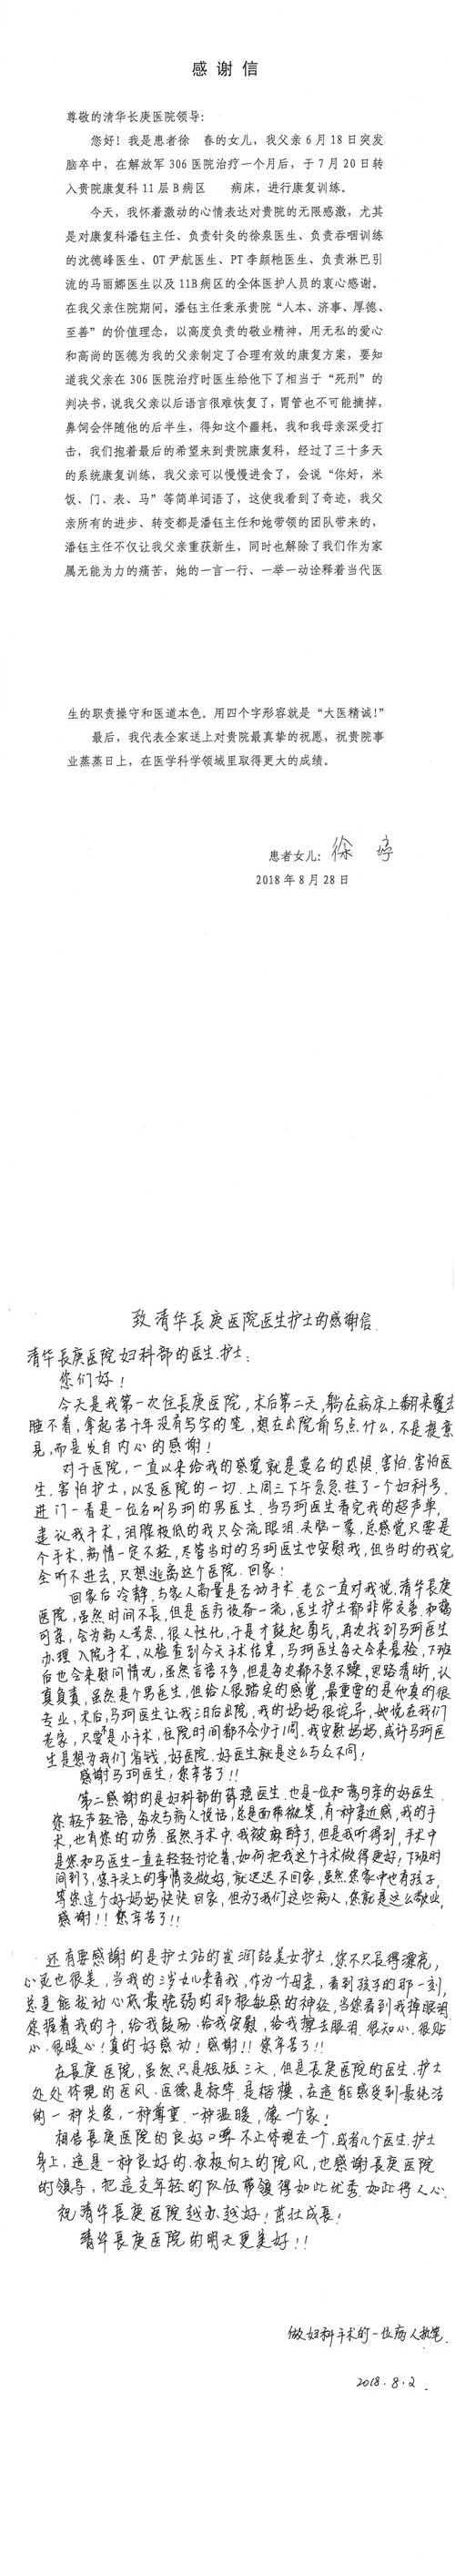 感谢信
尊敬的清华长庚医院领导：
您好！我是患者徐 春的女儿，我父亲6月18日突发
脑卒中，在解放军306医院治疗一个月后，于7月20日转
入贵院康复科11层B病区 病床，进行康复训练。
今天，我怀着激动的心情表达对贵院的无限感激，尤其
是对康复科潘钰主任、负责针灸的徐泉医生、负责吞咽训练
的沈德峰医生、OT尹航医生、PT李颜杝医生、负责淋巴引
流的马丽娜医生以及11B病区的全体医护人员的衷心感谢。
在我父亲住院期间，潘钰主任秉承贵院“人本、济事、厚德、
至善”的价值理念，以高度负责的敬业精神，用无私的爱心
和高尚的医德为我的父亲制定了合理有效的康复方案，要知
道我父亲在306医院治疗时医生给他下了相当于“死刑”的
判决书，说我父亲以后语言很难恢复了，胃管也不可能摘掉，
鼻饲会伴随他的后半生，得知这个噩耗，我和我母亲深受打
击，我们抱着最后的希望来到贵院康复科，经过了三十多天
的系统康复训练，我父亲可以慢慢进食了，会说“你好，米
饭、门、表、马”等简单词语了，这使我看到了奇迹，我父
亲所有的进步、转变都是潘钰主任和她带领的团队带来的，
潘钰主任不仅让我父亲重获新生，同时也解除了我们作为家
属无能为力的痛苦，她的一言一行、一举一动诠释着当代医
生的职责操守和医道本色。用四个字形容就是“大医精诚！”
最后，我代表全家送上对贵院最真挚的祝愿，祝贵院事
业蒸蒸日上，在医学科学领域里取得更大的成绩。
患者女儿：徐 婷
2018年8月28日
致清华長庚医院医生护士的感谢信.
清华長庚医院妇科部的医生.护士：
您们好！
今天是我第一次住長庚医院，术后第二天，躺在病床上翻来覆去
睡不着，拿起若干年没有写字的笔，想在出院前写点什么，不是提意
见，而是发自内心的感谢！
对于医院，一直以来给我的感觉就是莫名的恐惧.害怕.害怕医
生.害怕护士，以及医院的一切.上周三下午急急挂了一个妇科号.
进门一看是一位名叫马珂的男医生.当马珂医生看完我的超声单，
建议我手术，泪腺极低的我只会流眼泪.头脑一蒙，总感觉只要是
个手术，病情一定不轻，尽管当时的马珂医生也安慰我，但当时的我完
全听不进去，只想逃离这个医院.回家！
回家后冷静.与家人商量是否动手术.老公一直对我说，清华長庚
医院，虽然时间不長，但是医疗设备一流，医生护士都非常友善.和蔼
可亲，会为病人考虑.很人性化，于是才鼓起勇气，再次找到马珂医生
办理入院手术，从检查到今天手术结束，马珂医生每天会来看检，下班
后也会来慰问情况，虽然言语不多，但是每次都不急不躁，思路清晰，认
真负责，虽然是个男医生，但给人很踏实的感觉，最重要的是他真的很
专业，术后，马珂医生让我三日后出院，我的妈妈很诧异，她说在我们
老家，只要不是小手术，住院时间都不会少于1周.我安慰妈妈，或许马珂医
生是想为我们省钱，好医院.好医生就是这么与众不同！
感谢马珂医生！您辛苦了！！
第二感谢的是妇科部的薛 医生.也是一位和蔼可亲的好医生.
您轻声轻语，每次与病人说话，总是面带微笑，有一种亲近感，我的手
术，也有您的功劳.虽然手术中，我被麻醉了，但是我听得到，手术中
是您和马医生一直在轻轻讨论着，如何把我这个手术做得更好！下班时
间到了，您手头上的事情没做好，就迟迟不回家，虽然您家中也有孩子，
等您这个好妈妈快快回家，但为了我们这些病人，您就是这么敬业，
感谢！！您辛苦了！！
还有要感謝的是护士站的崔润喆美女护士，您不只長得漂亮，
心更也很美，当我的3岁女儿来看我，作为个母亲，看到孩子的那一刻，
总是能拨动心底最脆弱的那根敏感的神经，当您看到我掉眼泪.
您握着我的手，给我鼓励.给我安慰，给我擦去眼泪.很知心.很贴
心.很暖心！真的好感动！感谢！！您辛苦了！！
在長庚医院，虽然只是短短三天，但是長庚医院的医生.护士
处处体现的医风.医德是标竿.是楷模，在這能感受到最純洁
的一种关爱，一种尊重.一种温暖，像一个家！
相信長庚医院的良好口啤不止体现在一个，或者几个医生.护士
身上，這是一种良好的.积极向上的院风，也感谢長庚医院
的領导，把這支年轻的队伍带领得如此优秀.如此得人心.
祝清华長庚医院越办越好！茁壮成長！
清华長庚医院的明天更美好！！
做妇科手术的一位病人执笔.
2018.8.2.